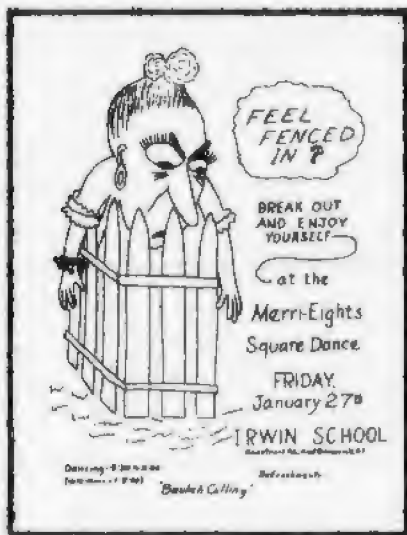 FEEL
FENCED
IN ?
BREAK OUT
AND ENJOY
YOURSELF
at the
Merri-Eights
Square Dance
FRIDAY
January 27th
IRWIN SCHOOL
Dancing
Refreshments
Calling"